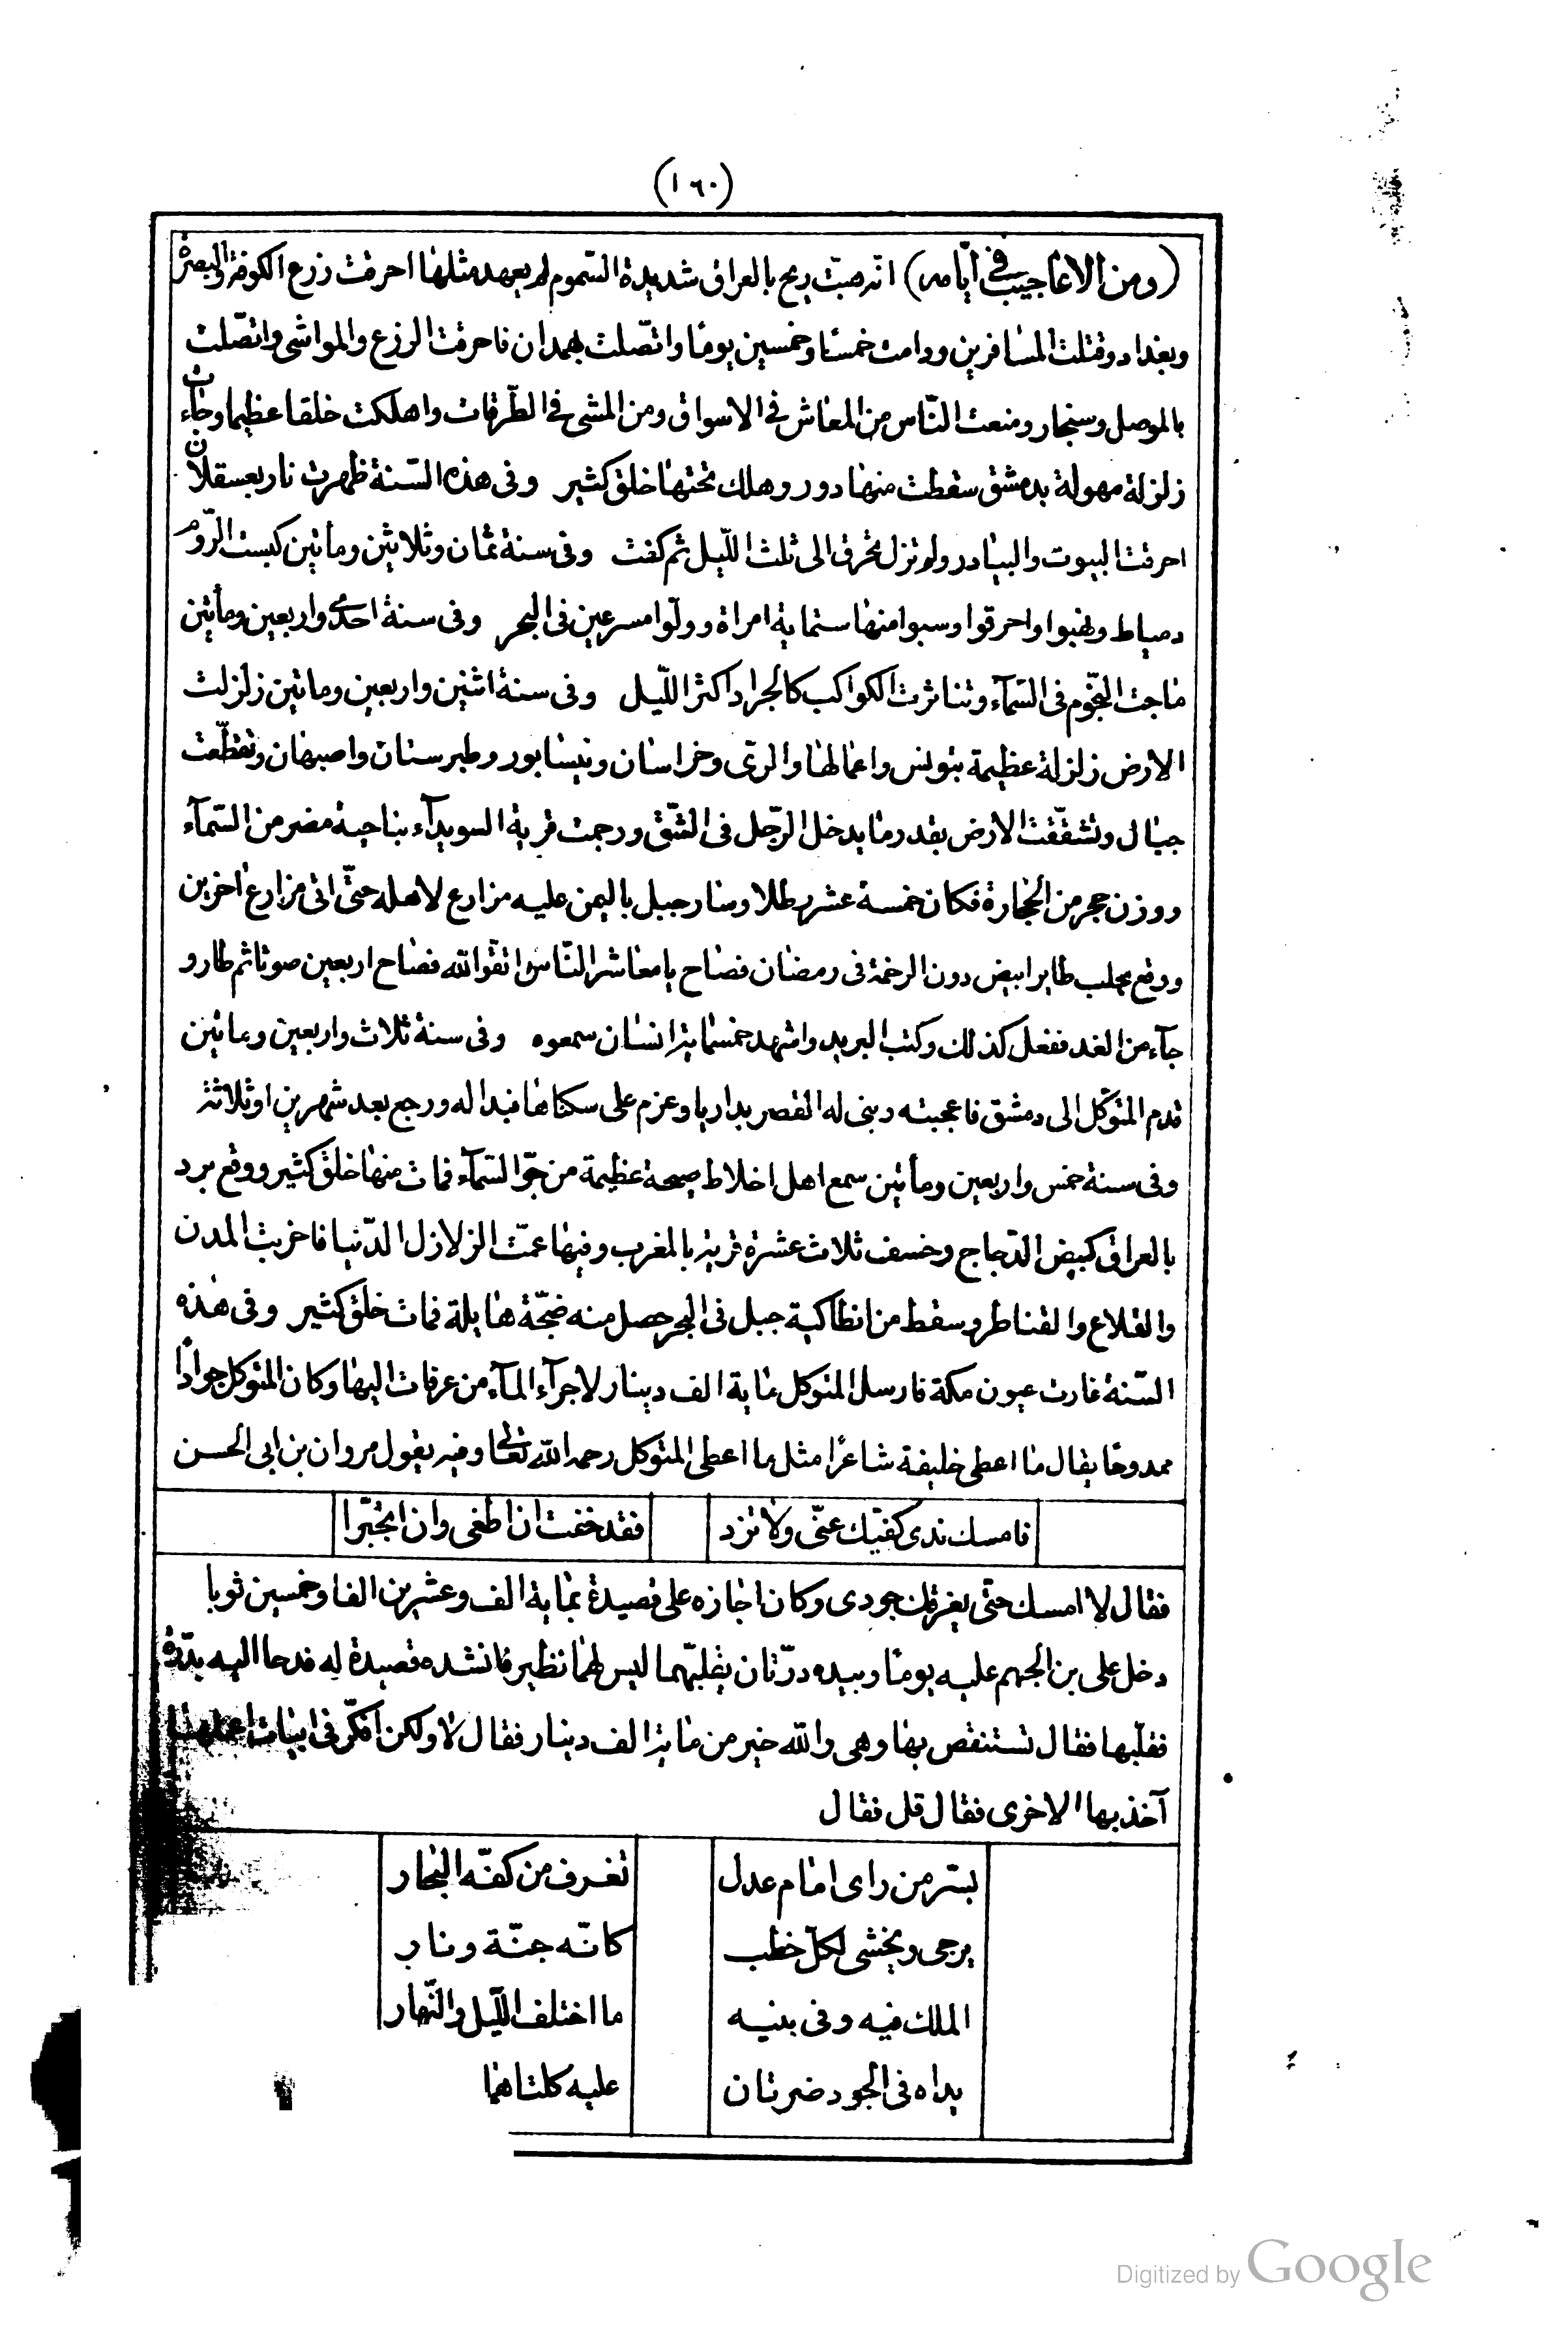 (١٦٠)
(ومن الاعاجيب في ايّامه) انّه هبّت ريح بالعراق شديدة السّموم لم يعهد مثلها احرقت زرع الكوفة والبصرة
وبغداد وقتلت المسافرين ودامت خمسًا وخمسين يومًا واتّصلت بهمدان فاحرقت الزرع والمواشى واتّصلت
بالموصل وسنجار ومنعت النّاس من المعاش في الاسواق ومن المشى في الطّرقات واهلكت خلقا عظيما وجاءت
زلزلة مهولة بدمشق سقطت منها دور وهلك تحتها خلق كثير وفى هذه السّنة ظهرت نار بعسقلان
احرقت البيوت والبيادر ولم تزل تحرق الى ثلث اللّيل ثم كفت وفى سنة ثمان وثلاثين ومأتين كبست الرّوم
دمياط ونهبوا واحرقوا وسبوا منها ستماية امراة وولّوا مسرعين فى البحر وفى سنة احدى واربعين ومأتين
ماجت النجّوم فى السّمآء وتناثرت الكواكب كالجراد اكثر اللّيل وفى سنة اثنين واربعين وماتين زلزلت
الارض زلزلة عظيمة بتونس واعمالها والرّى وخراسان ونيسابور وطبرستان واصبهان وتقطّعت
جبال وتشقّقت الارض بقدر ما يدخل الرّجل فى الشّق ورجمت قرية السويدآء بناحية مضر من السّمآء
ووزن حجر من الحجارة فكان خمسة عشر رطلا وسار جبل باليمن عليه مزارع لاهله حتّى اتى مزارع اخرين
ووقع بحلب طاير ابيض دون الرخمة فى رمضان فصاح يا معاشر النّاس اتقوا الله فصاح اربعين صوتا ثم طار و
جآء من الغد ففعل كذلك وكتب البريد واشهد خمسماية انسان سمعوه وفى سنة ثلاث واربعين وماتين
قدم المتوكّل الى دمشق فاعجبته وبنى له القصر بداريا وعزم على سكناها فبدا له ورجع بعد شهرين او ثلاثة
وفى سنة خمس واربعين ومأتين سمع اهل اخلاط صيحة عظيمة من جوّ السّمآء فمات منها خلق كثير ووقع برد
بالعراق كبيض الدّجاج وخسف ثلاث عشرة قرية بالمغرب وفيها عمّت الزلازل الدّنيا فاخربت المدن
والقلاع والقناطر وسقط من انطاكية جبل فى البحر حصل منه ضجّة هايلة فمات خلق كثير وفى هذه
السّنة غارت عيون مكة فارسل المتوكل بماية الف دينار لاجرآء المآء من عرفات اليها وكان المتوكل جوادًا
ممدوحًا يقال ما اعطى خليفة شاعرًا مثل ما اعطى المتوكل رحمه الله تعالى وفيه يقول مروان بن ابى الحسن
فامسك ندى كفّيك عنّى ولا تزد فقد خفت ان اطغى وان اتجبّرا
فقال لا امسك حتّى يغرقك جودى وكان اجازه على قصيدة بماية الف وعشرين الفا وخمسين ثوبا
دخل على بن الجهم عليه يومًا وبيده درّتان يقلبّهما ليس لهما نظير فانشده قصيدة له فدحا اليه بدّرة
فقلّبها فقال تستنقص بها وهى والله خير من ماية الف دينار فقال لا ولكن افكّر فى ابيات اعملها
آخذ بها الاخرى فقال قل فقال
بسّر من راى امام عدل تغرف من كفّه البحار
يرجى ويخشى لكلّ خطب كانّه جنّة ونار
الملك فيه وفى بنيه ما اختلف اللّيل والنّهار
يداه فى الجود ضرتان عليه كلتاهما
Digitized by Google